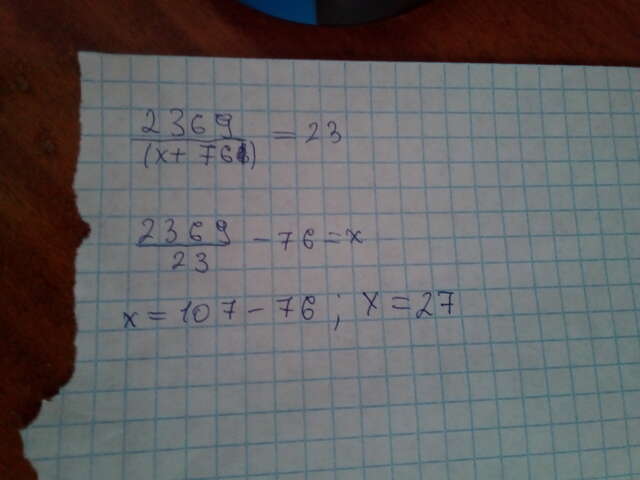 2369
(x+ 76) = 23
2369
23 - 76 = x
x = 107 - 76 ; x = 27